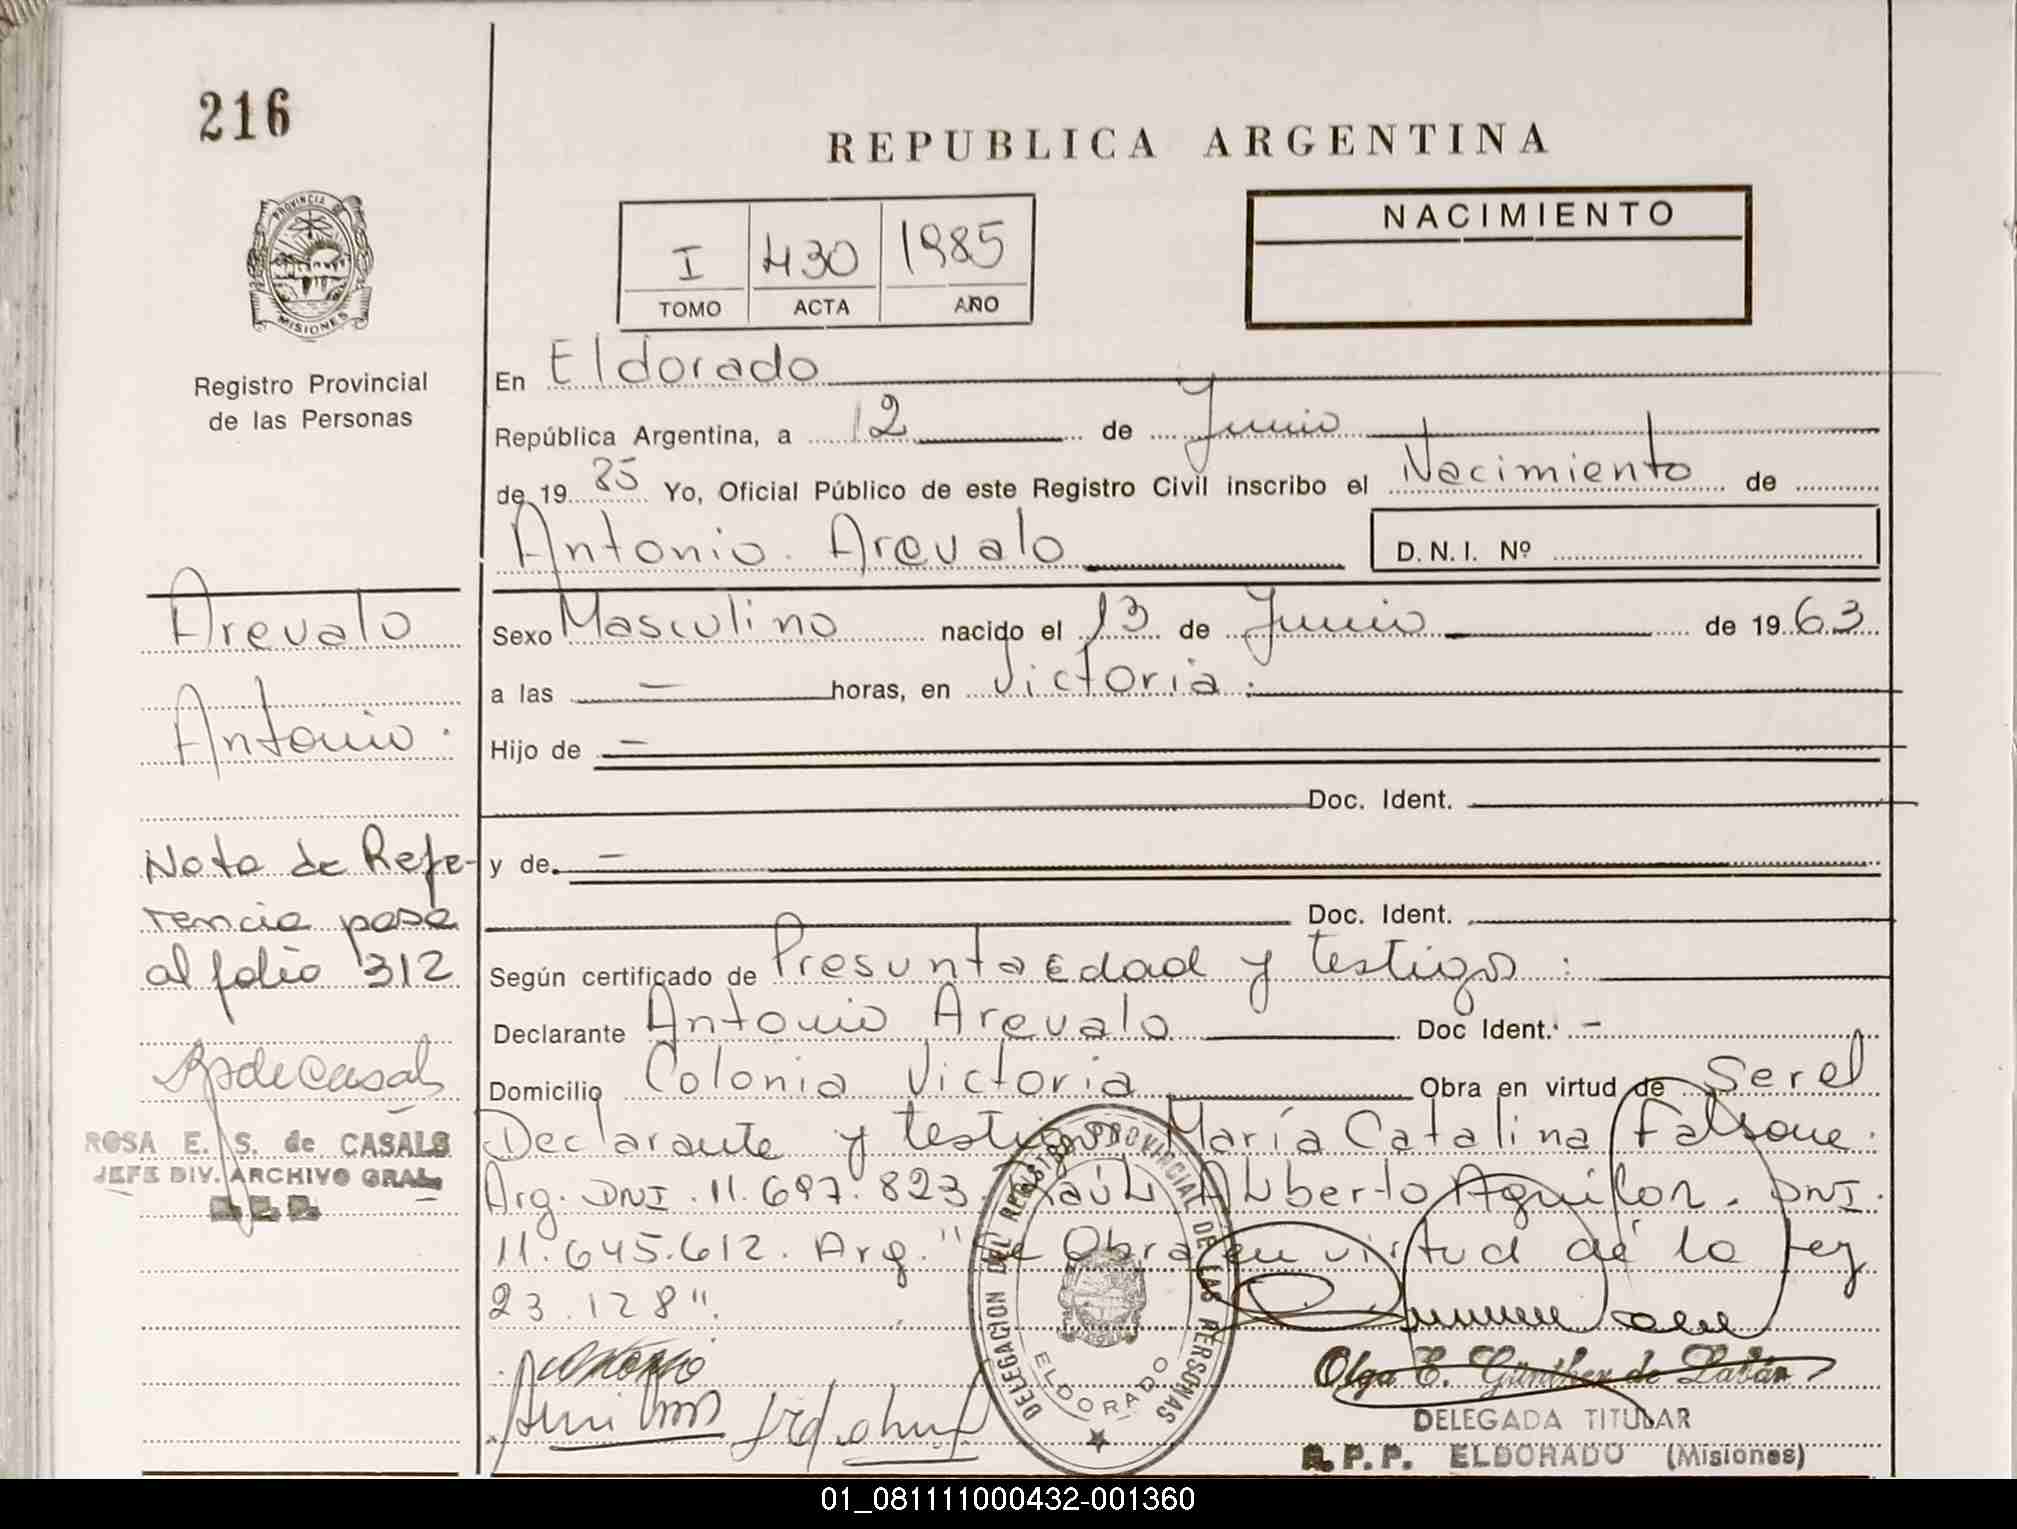 216
REPUBLICA ARGENTINA
PROVINCIA DE
MISIONES
Registro Provincial
de las Personas
I 430 1985
TOMO ACTA AÑO
NACIMIENTO
En Eldorado
República Argentina, a 12 de Junio
de 19 85 Yo, Oficial Público de este Registro Civil inscribo el Nacimiento de
Antonio Arevalo D.N.I. Nº
Arevalo
Antonio.
Sexo Masculino nacido el 13 de Junio de 19 63
a las — horas, en Victoria.
Hijo de —
Doc. Ident.
y de. —
Doc. Ident.
Nota de Refe-
rencia pasa
al folio 312
ROSA E. S. de CASALS
JEFE DIV. ARCHIVO GRAL.
Según certificado de Presunta Edad y testigos:
Declarante Antonio Arevalo Doc Ident. –
Domicilio Colonia Victoria Obra en virtud de Ser el
Declarante y testigos María Catalina Falsone.
Arg. DNI. 11.697.823. Raúl Alberto Aguilar. DNI.
11.645.612. Arg. "Se Obra en virtud de la Ley
23.128".
DELEGACION DEL REGISTRO PROVINCIAL DE LAS PERSONAS
ELDORADO
Olga E. Günther de Labán
DELEGADA TITULAR
R.P.P. ELDORADO (Misiones)
01_081111000432-001360